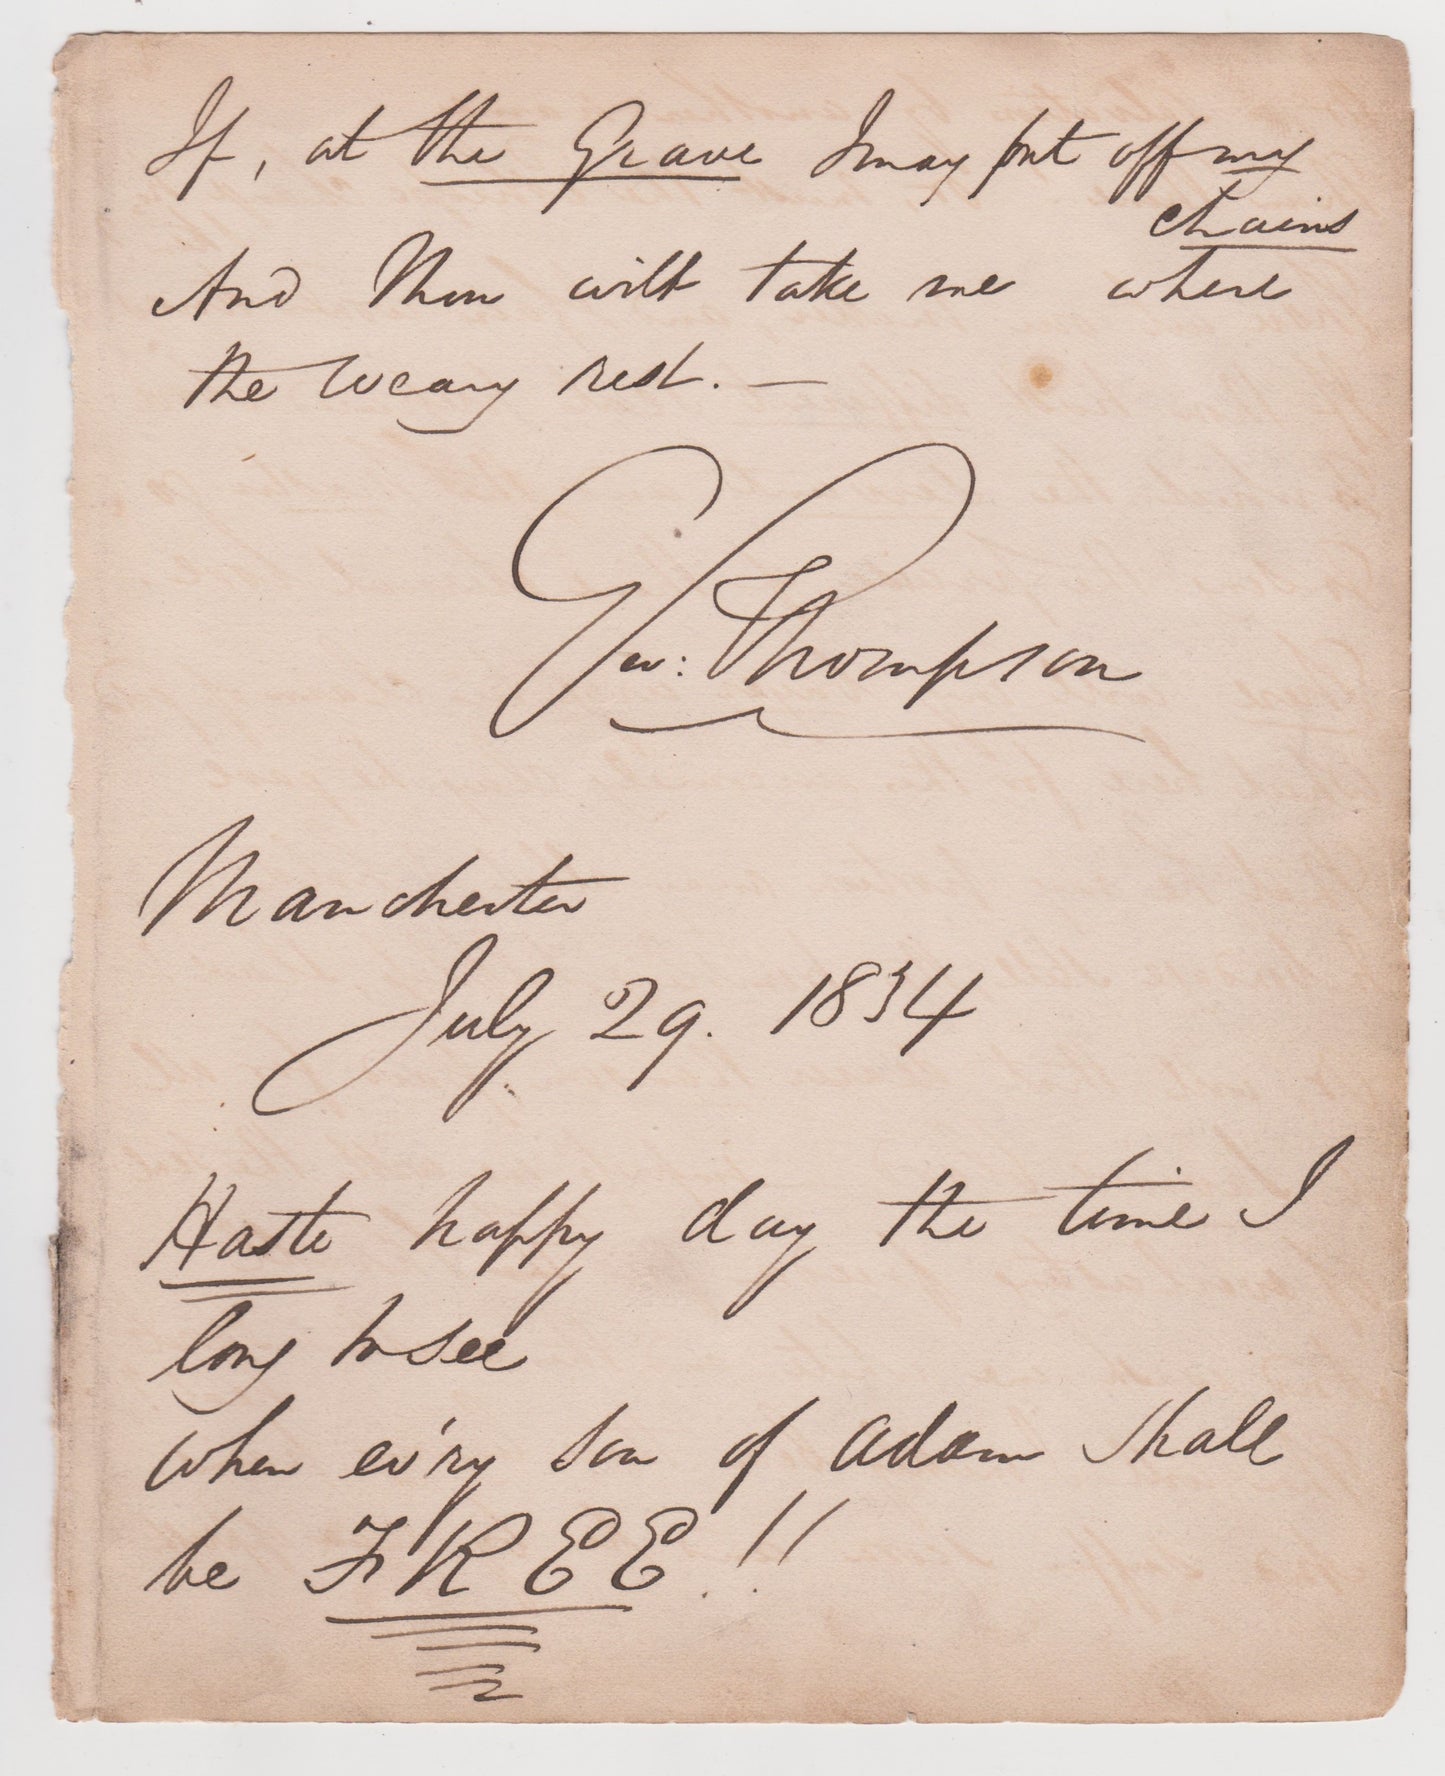 If, at the Grave I may put off my
chains
And Thou wilt take me where
the weary rest. —
Geo: Thompson
Manchester
July 29. 1834
Haste happy day the time I
long to see
when ev'ry son of Adam shall
be FREE!!